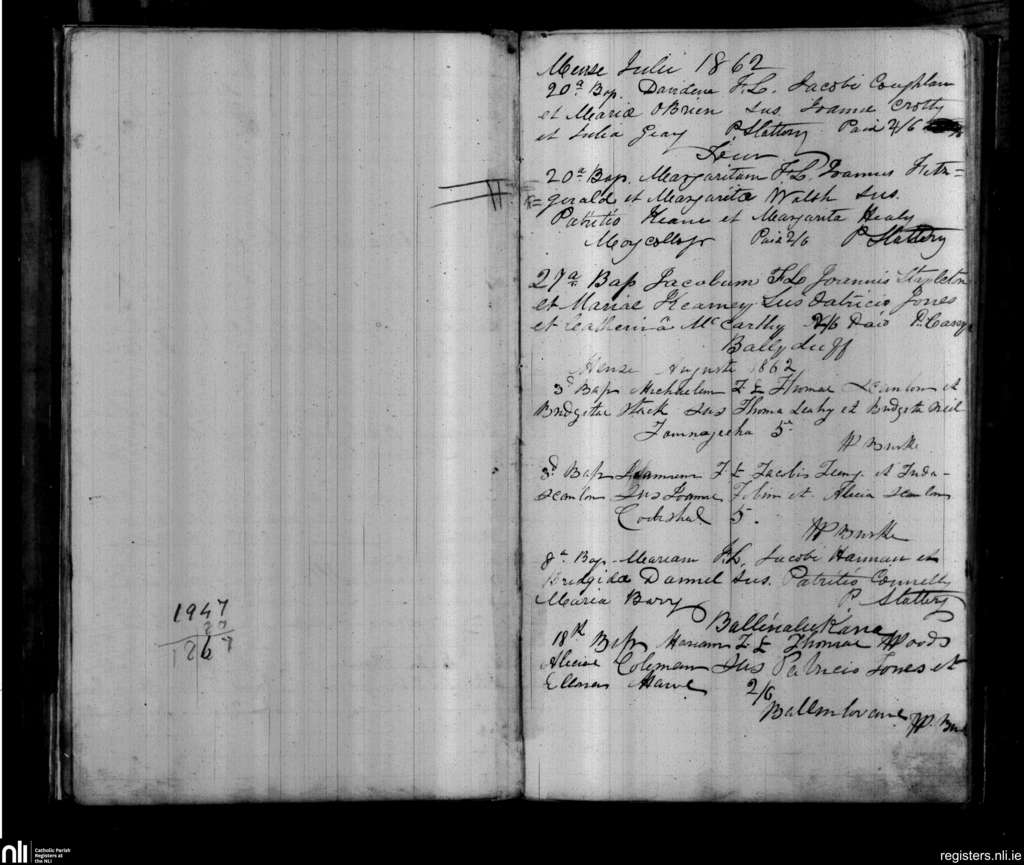 1947
20
1267
Mense Julii 1862
20a Bap. F.L. Jacobi Coughlan
et Maria OBrien Sus. Joanne Crotty
et Julia Geary P Slattery Paid 2/6
20a Bap. Margaritam F.L. Joannis Fitz=
=gerald et Margarita Walsh Sus.
Patritio Keane et Margarita Healy
Moycollop Paid 2/6 P Slattery
27a Bap Jacobum F.L Joannis Stapleton
et Mariae Kearney Sus Patricio Jones
et Catherinâ McCarthy 2/6 Paid P. Casey
Ballyduff
Mense Augusti 1862
3d Bap Michaelem F L Thomae Scanlon et
Bridgitae Stack Sus Thoma Leahy et Bridgitta Neil
5
W Burke
3d Bap Joannem F L Jacobi et Juda
Scanlon Sus Joanne Tobin et Alicia Scanlon
5.
W Burke
8a Bap. Mariam F.L. Jacobi Hannan et
Bridgida Daniel Sus. Patritio Connelly
Maria Barry P Slattery
18th Bap Mariam F L Thomae Woods
Aliciae Coleman Sus Patricio Jones et
Ellenora 2/6
W. Bur
nli Catholic Parish
Registers at
the NLI
registers.nli.ie